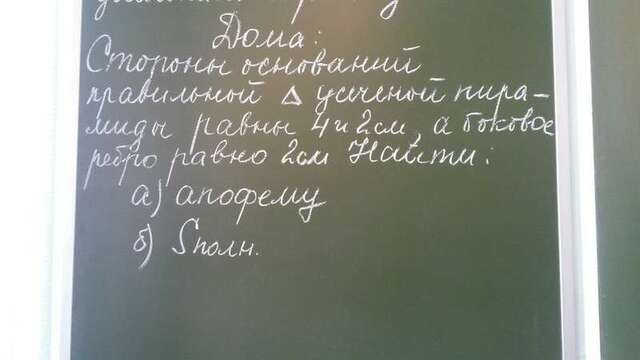 Дома:
Стороны оснований
правильной Δ усеченой пира-
миды равны 4 и 2см, а боковое
ребро равно 2см Найти:
а) апофему
б) Sполн.